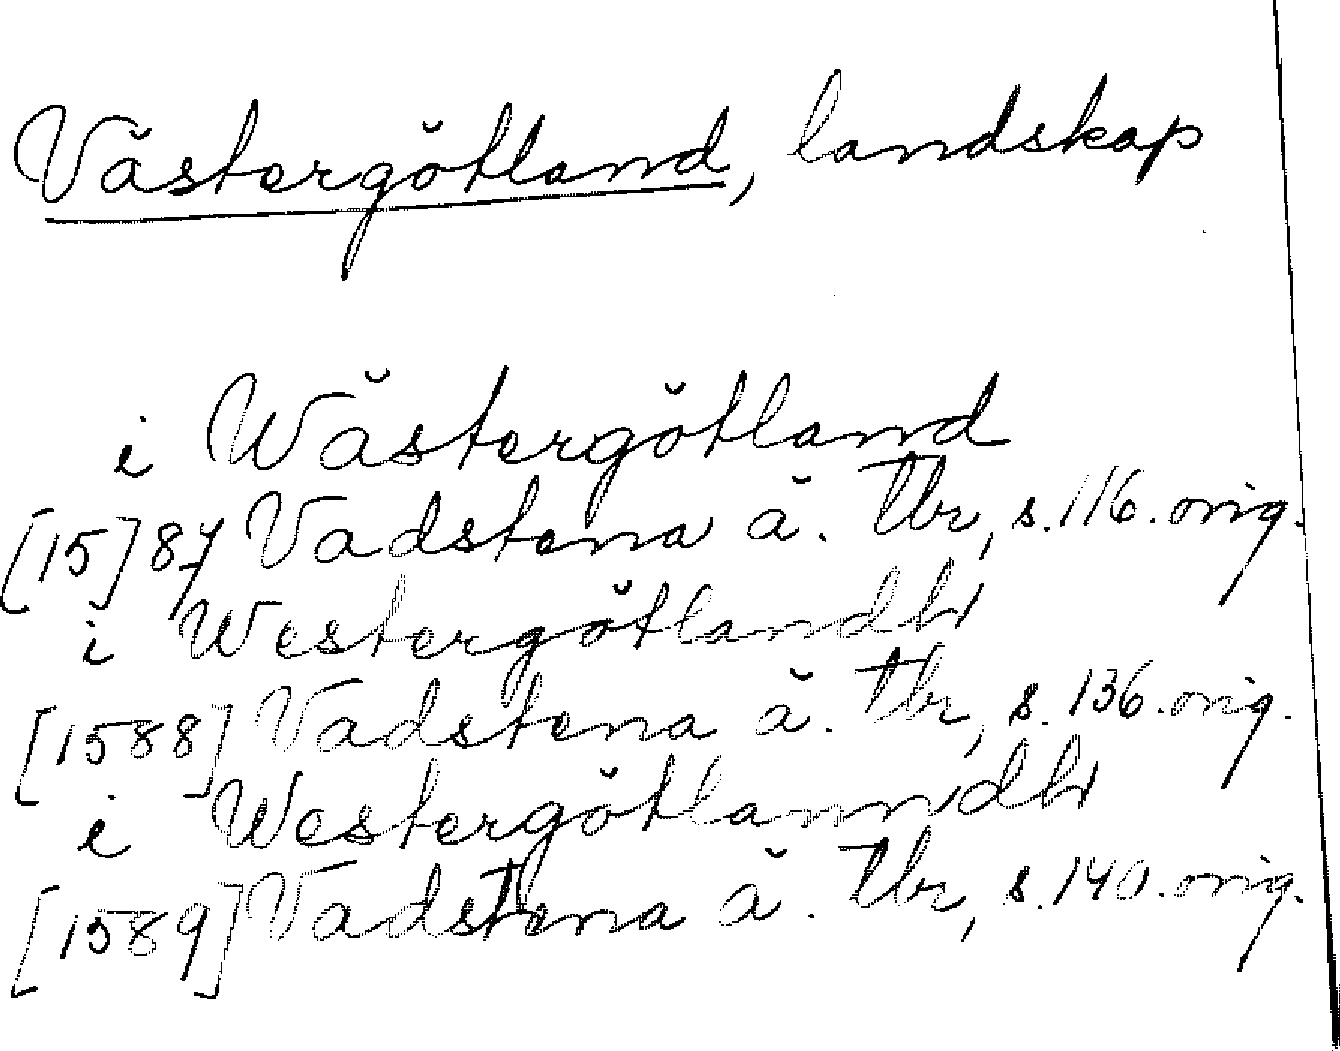 Västergötland, landskap
i Wästergötland
[15]87 Vadstena ä. tbr, s. 116. orig.
i Westergötlandh
[1588] Vadstena ä. tbr, s. 136. orig.
i Westergötlanndh
[1589] Vadstena ä. tbr, s. 140. orig.